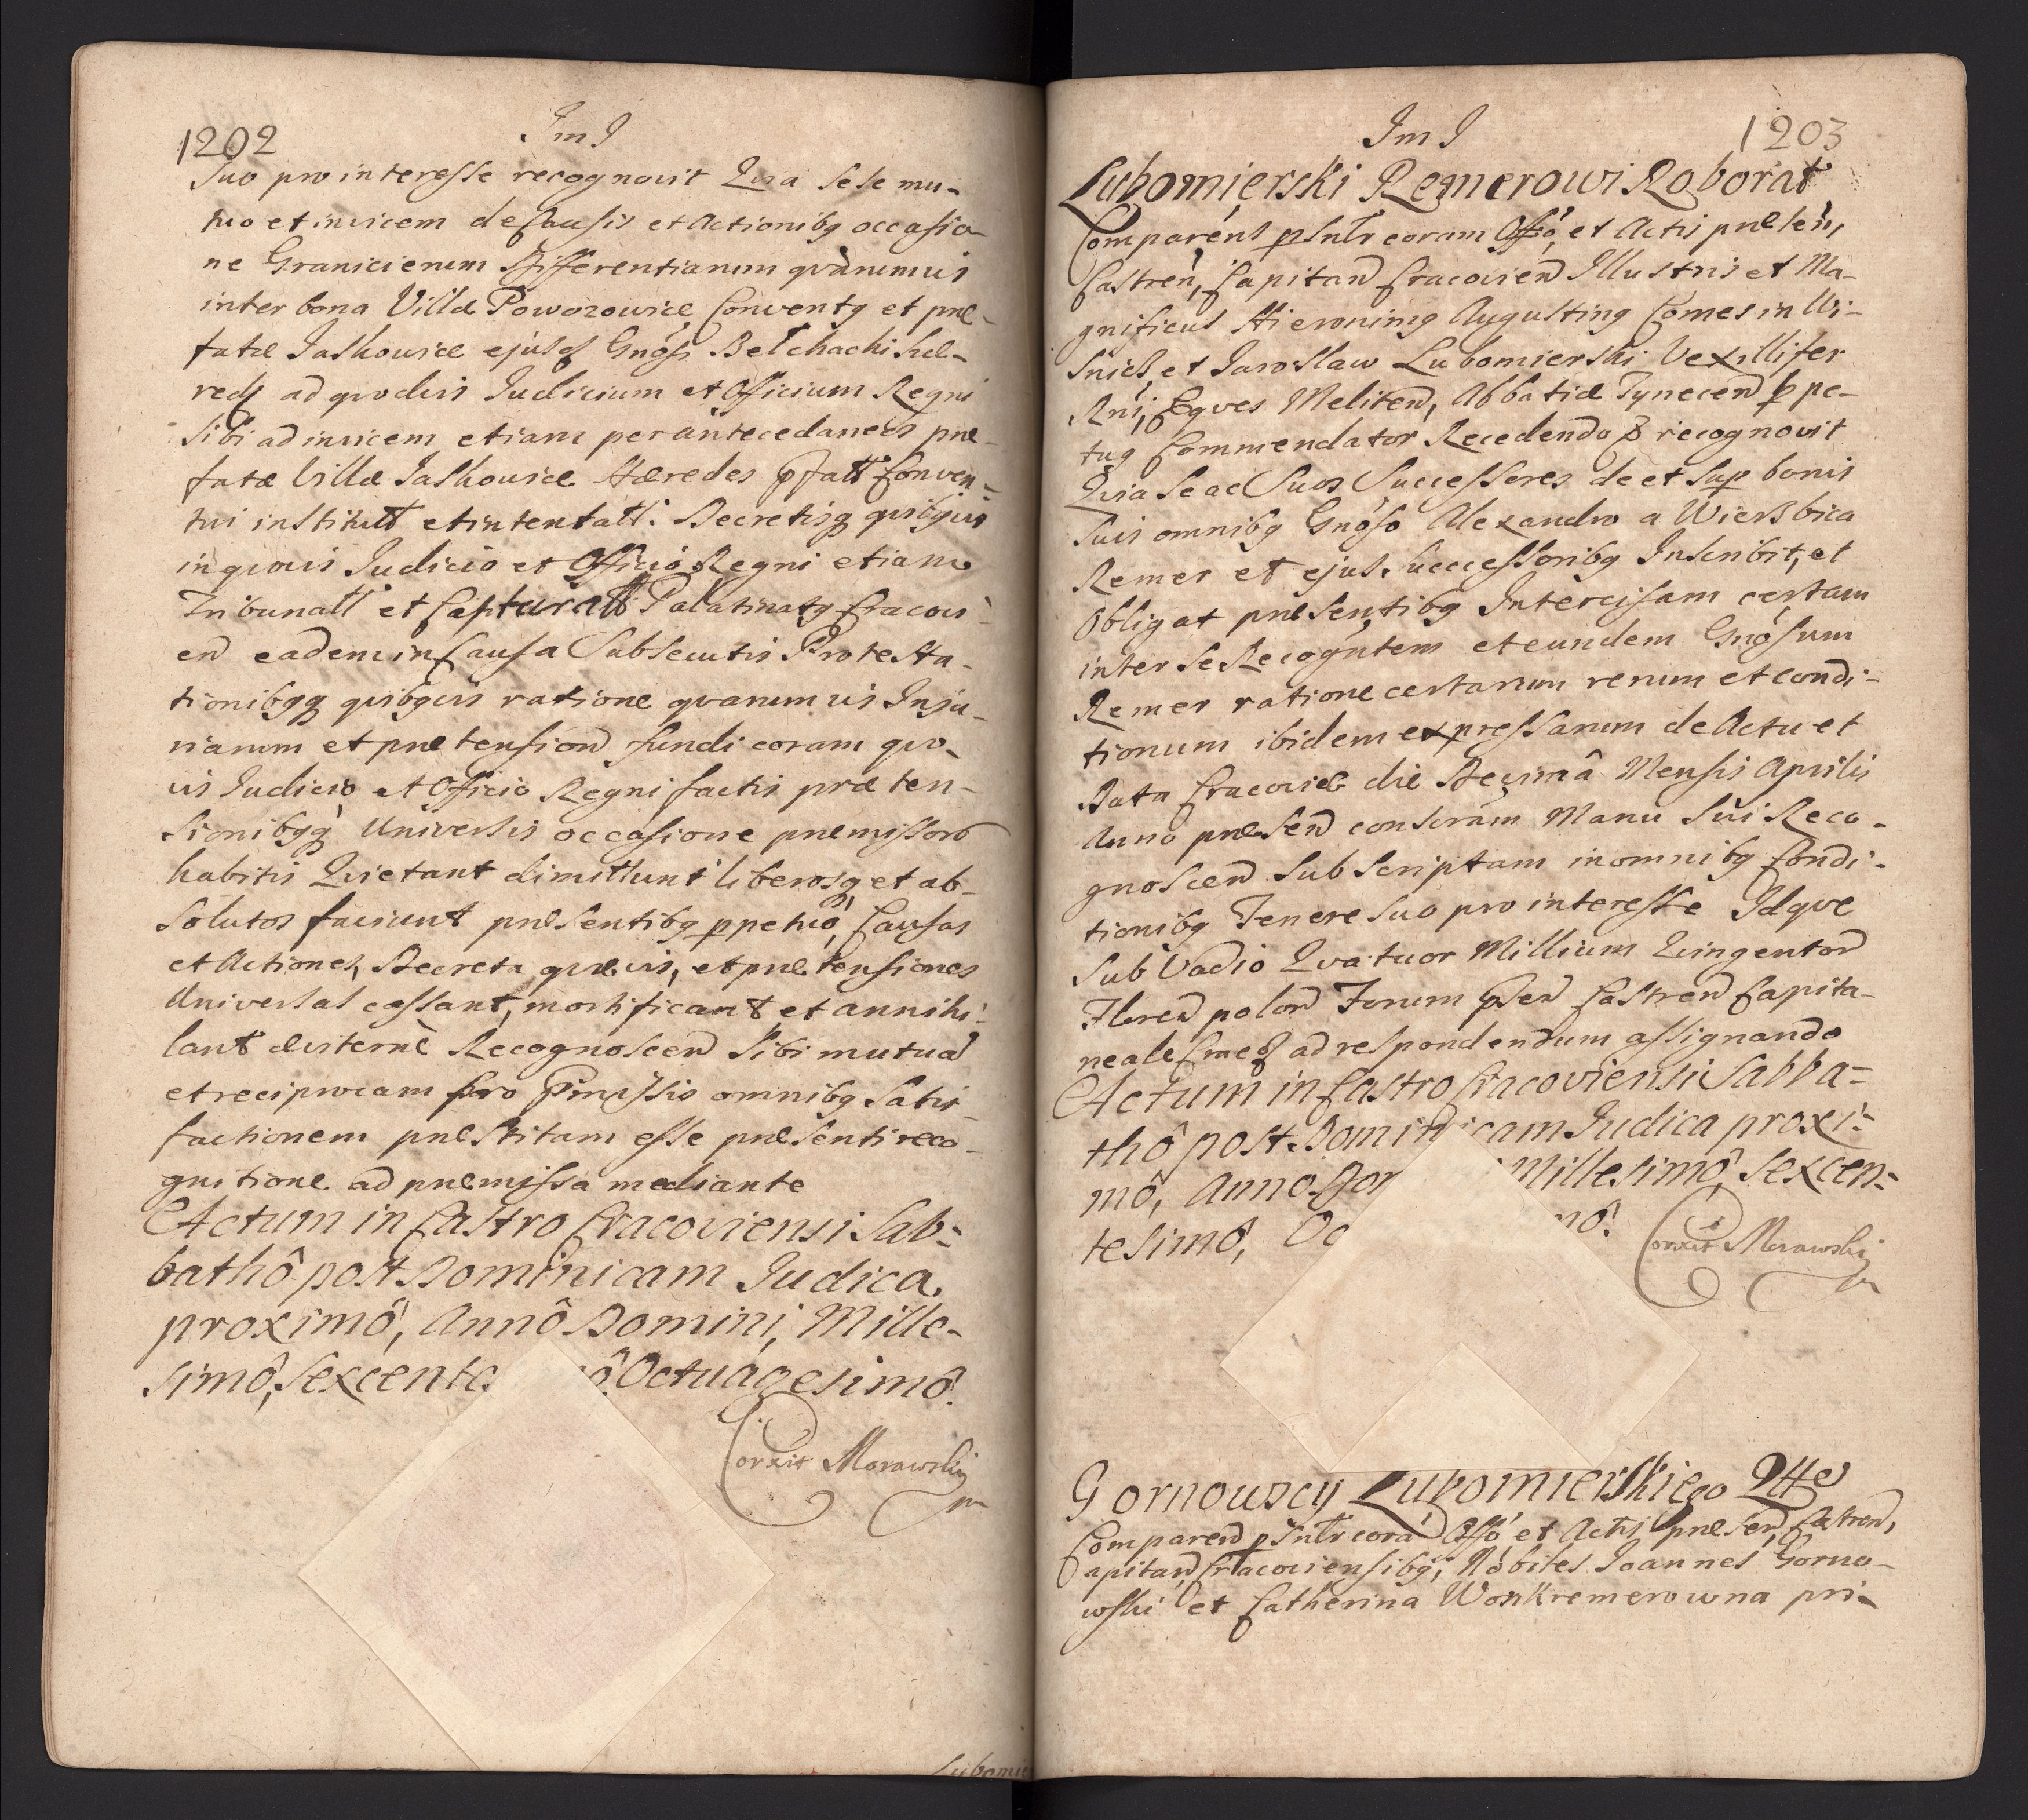 1202
Im J
suo pro interesse recognovit Quia sese mu-
tuo et invicem de Causis et Actionibq occasio-
ne Granicierum Differentiarum qvarumvis
inter bona Villæ Powozowice Conventq et præ-
fatæ Jaskowice ejusq Gnosi Betchachi hæ-
redq ad qvodvis Judicium et Officium Regni
sibi ad invicem etiam per antecedaneos præ-
fatæ Villæ Jaskowice Hæredes pfatt Conven-
tui institutt et intentatt: Decretisq qvibqvis
in qvovis Judicio et Officio Regni etiam
Tribunall et Capturall Palatinatq Cracovi-
en eadem in Causa Subsecutis Protesta-
tionibqq qvibqvis ratione qvarumvis Inju-
riarum et prætension fundi coram qvo-
vis Judicio et Officio Regni factis præten-
sionibqq Universis occasione præmissor
habitis Qvietant dimittunt liberosq et ab-
solutos faciunt præsentibq ppetuo, Causas
et Actiones, Decreta qvævis, et prætensiones
Universas cassant, mortificant et annihi-
lant æviternè Recognoscen sibi mutua
et reciprocam pro Pmissis omnibq Satis-
factionem præstitam esse præsenti reco-
gnitione ad præmissa mediante
Actum in Castro Cracoviensi Sab-
bathô post Dominicam Judica
proximô, Annô Domini, Mille-
simô, Sexcente ô Octuagesimô.
Corxit Morawski
mp
Lubomier
Im J
1203
Lubomierski Remerowi Roborat
Comparens psnlr coram Offo, et Actis præsen,
Castren, Capitan Cracovien Illustris et Ma-
gnificus Hieronimq Augustinq Comes in Wi-
snicz et Jaroslaw Lubomierski Vexillifer
Rni, Eqves Meliten, Abbatiæ Tynecen ppe-
tuq Commendator Recedendo & recognovit
Quia se ac Suos Successores de et sup bonis
suis omnibq Gnoso Alexandro a Wiersbica
Remer et ejus Successoribq Inscribit, et
Obligat præsentibq Intercisam certam
inter se Recogntem et eundem Gnosum
Remer ratione certarum rerum et condi-
tionum ibidem expressarum de Actu et
Data Cracoviæ die Decimâ Mensis Aprilis
Anno præsen conscram Manu sui Reco-
gnoscen Subscriptam in omnibq Condi-
tionibq Tenere suo pro interesse Idqve
sub Vadio Qvatuor Millium Qvingentor
Floren polon Forum psen Castren Capita-
neale Cracq ad respondendum assignando
Actum in Castro Cracoviensi Sabba-
thô post Dominicam Judica proxi-
mô, Anno Dom Millesimô, Sexcen-
tesimô, Oc mô.
Corxit Morawski
mp
Gornowscy Lubomierskiego Qtte
Comparen psnlr cora Offo, et Actis præsen, Castren,
Capitan Cracoviensibq, Nobiles Joannes Gorno-
wski et Catherina Wonkremerowna pri-